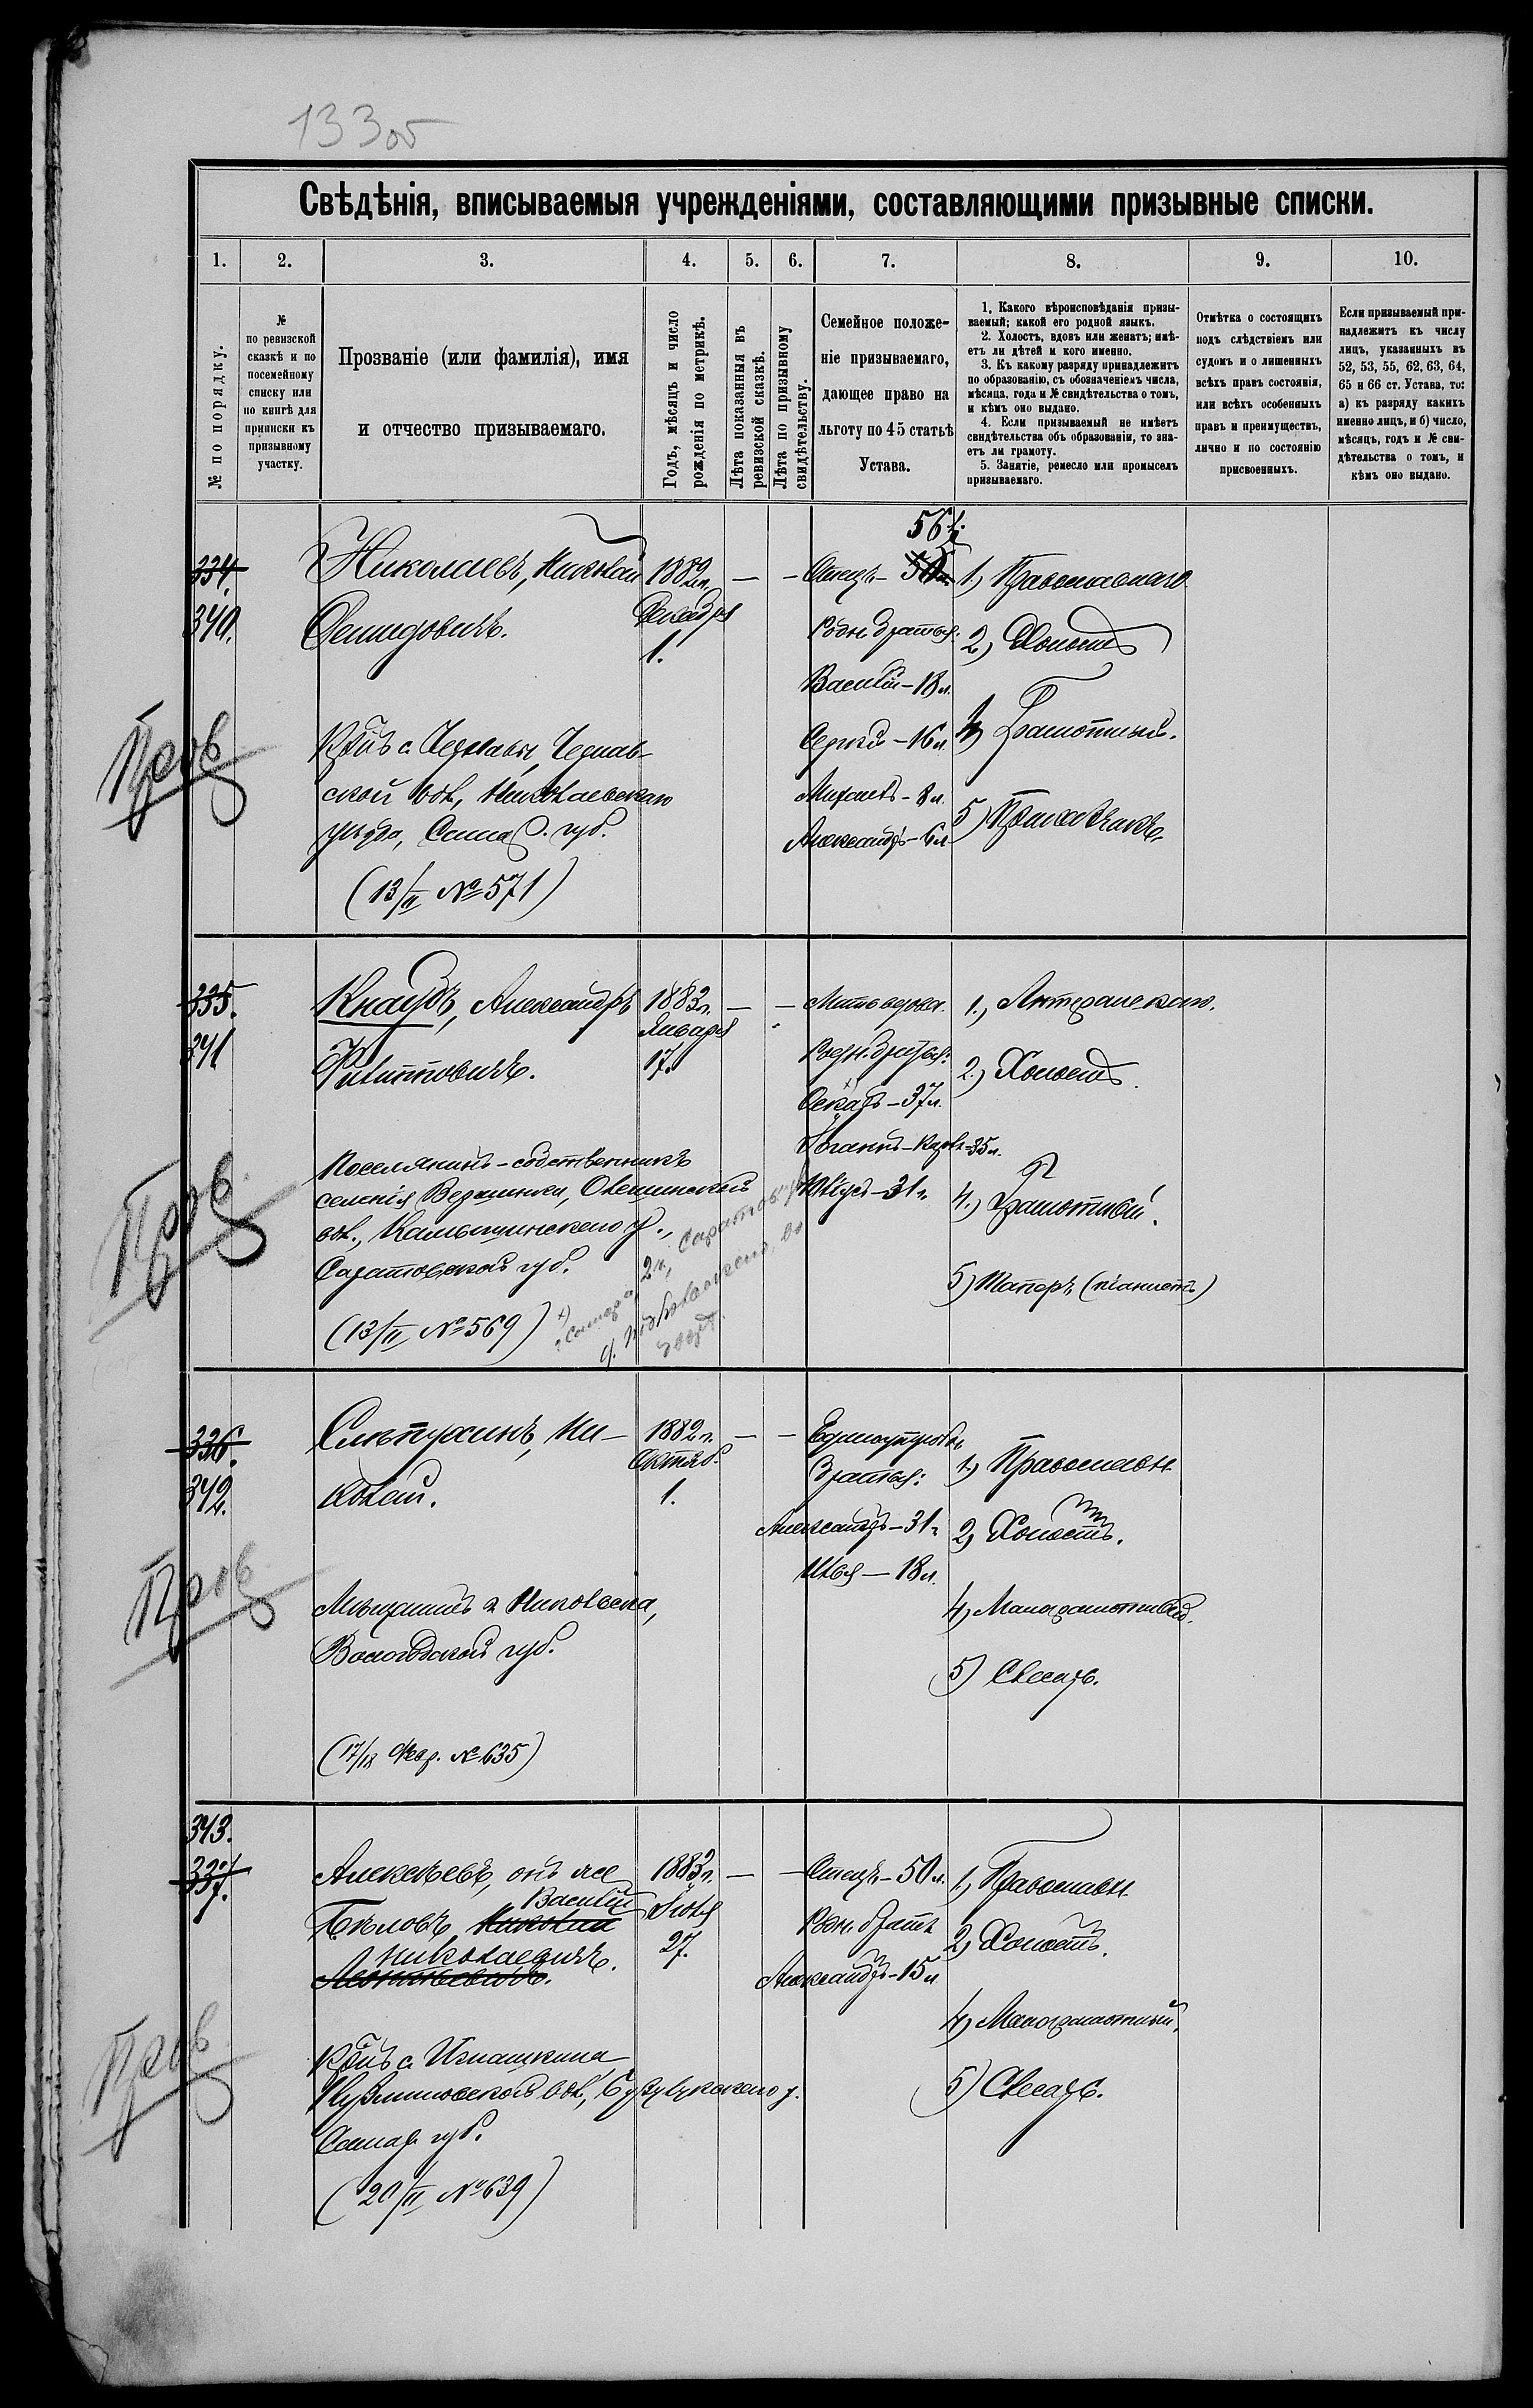 133об
Свѣдѣнія, вписываемыя учрежденіями, составляющими призывные списки.
1. 2. 3. 4. 5. 6. 7. 8. 9. 10.
№ по порядку.
№
по ревизской
сказкѣ и по
посемейному
списку или
по книгѣ для
приписки къ
призывному
участку.
Прозваніе (или фамилія), имя
и отчество призываемаго.
Годъ, мѣсяцъ и число
рожденія по метрикѣ.
Лѣта показанныя въ
ревизской сказкѣ.
Лѣта по призывному
свидѣтельству.
Семейное положе-
ніе призываемаго,
дающее право на
льготу по 45 статьѣ
Устава.
1. Какого вѣроисповѣданія призы-
ваемый; какой его родной языкъ.
2. Холостъ, вдовъ или женатъ; имѣ-
етъ ли дѣтей и кого именно.
3. Къ какому разряду принадлежитъ
по образованію, съ обозначеніемъ числа,
мѣсяца, года и № свидѣтельства о томъ,
и кѣмъ оно выдано.
4. Если призываемый не имѣетъ
свидѣтельства объ образованіи, то зна-
етъ ли грамоту.
5. Занятіе, ремесло или промыселъ
призываемаго.
Отмѣтка о состоящихъ
подъ слѣдствіемъ или
судомъ и о лишенныхъ
всѣхъ правъ состоянія,
или всѣхъ особенныхъ
правъ и преимуществъ,
лично и по состоянію
присвоенныхъ.
Если призываемый при-
надлежитъ къ числу
лицъ, указанныхъ въ
52, 53, 55, 62, 63, 64,
65 и 66 ст. Устава, то:
а) къ разряду какихъ
именно лицъ, и б) число,
мѣсяцъ, годъ и № сви-
дѣтельства о томъ, и
кѣмъ оно выдано.
334.
340.
Николаевъ, Николай
Демидовичъ.
Кр-нъ с. Чернавы, Чернав-
ской вол., Николаевскаго
уѣзда, Самар. губ.
(13/II № 571)
1882 г.
Декабря
1.
— —
56 л.
Отецъ - 50 л.
Родн. братья:
Василій - 18 л.
Сергѣй - 16 л.
Михаилъ - 8 л.
Александръ - 6 л.
1, Православнаго
2, Холостъ
4, Грамотный.
5) Прикащикъ.
Пров
335.
341
Кнаубъ, Александръ
Филипповичъ.
Поселянинъ-собственникъ
селенія Вершинки,
вол., Камышинскаго у.,
Саратовской губ.
(13/II № 569)
1883 г.
Января
17.
— —
Мать вдова.
Родн. братья:
Оскаръ - 37 л.
Іоганнъ-Карлъ - 35 л.
Юліусъ - 31 г.
1., Лютеранскаго.
2.) Холостъ.
4.) Грамотный.
5) Таперъ (піанистъ)
Пров
336.
342.
Слѣпухинъ, Ни-
колай.
Мѣщанинъ г. Никольска,
Вологодской губ.
(17/18 Февр. № 635)
1882 г.
Октяб.
1.
— —
Единоутробн.
братья:
Александръ - 31 г.
Илья — 18 л.
1.) Православн.
2) Холостъ.
4) Малограмотный.
5) Слесарь.
Пров
343.
337.
Алексѣевъ, онъ же
Василій
Бѣловъ Николай
Николаевичъ.
Леонтьевичъ.
Кр-нъ с. Игнашкина
Кузминовской вол., Бузулукскаго у.
Самар. губ.
(20/II № 639)
1883 г.
Іюля
27.
— —
Отецъ - 50 л.
Родн. братъ
Александръ - 15 л.
1, Православн.
2, Холостъ.
4, Малограмотный.
5) Слесарь.
Пров